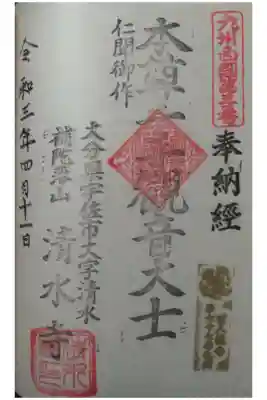 九州西國第三番
奉納經
本尊千手觀音大士
仁聞御作
大分縣宇佐市大字清水
補陀落山 清水寺
令和三年四月十一日